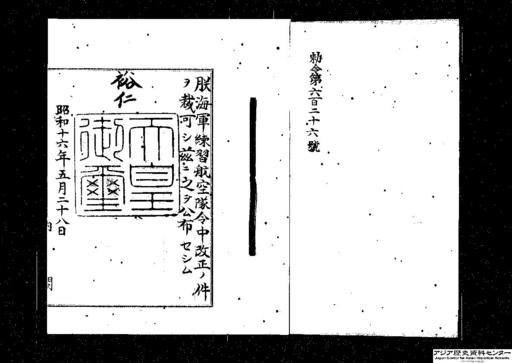 勅令第六百二十六號
朕海軍練習航空隊令中改正ノ件
ヲ裁可シ茲ニ之ヲ公布セシム
裕仁
天皇御璽
昭和十六年五月二十八日
内閣
アジア歴史資料センター
Japan Center for Asian Historical Records